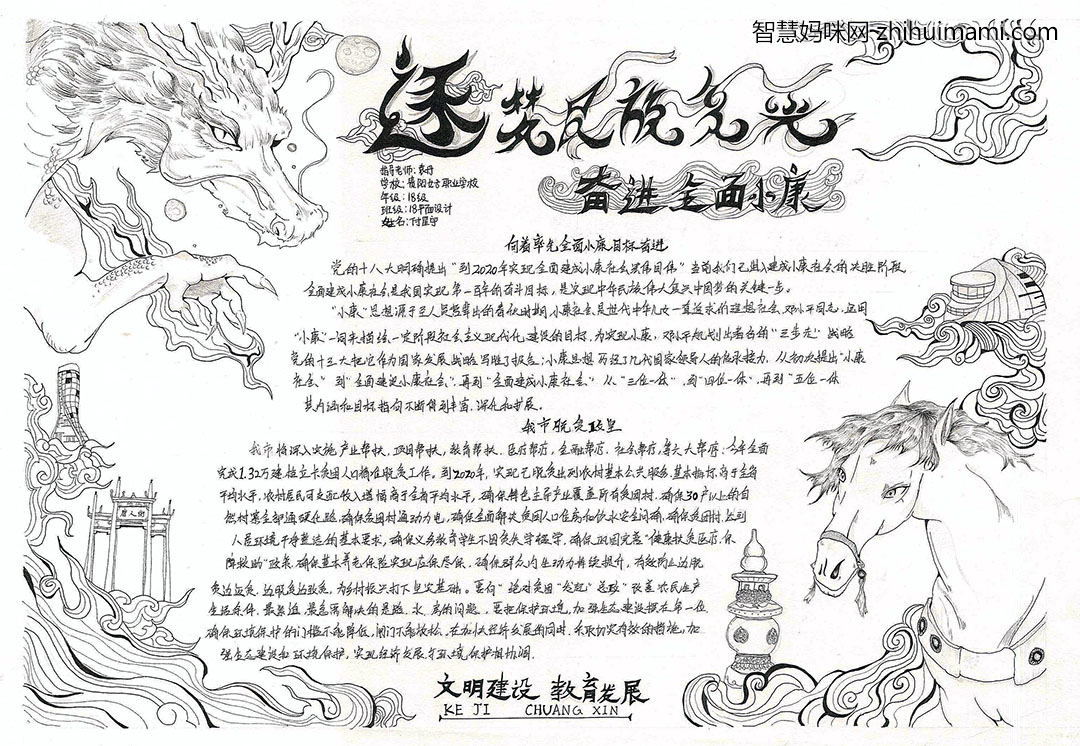 智慧妈咪网-zhihuimami.com
逐梦脱贫光
奋进全面小康
指导老师:袁丹
学校:贵阳女子职业学校
年级:18级
班级:18平面设计
向着率先全面小康目标奋进
党的十八大明确提出“到2020年实现全面建成小康社会宏伟目标”当前我们已进入建成小康社会的决胜阶段
全面建成小康社会是我国实现第一百年的奋斗目标,是实现中华民族伟大复兴中国梦的关键一步。
“小康”思想源于三人灵感辈出的春秋时期,小康社会是世代中华儿女一直追求的理想社会.邓小平同志,运用
“小康”一词来描绘一定阶段社会主义现代化建设的目标,为实现小康,邓小平规划出著名的“三步走”战略
党的十三大把它作为国家发展战略写进了报告;小康思想历经了几代国家领导人的继承接力,从初次提出“小康
社会”到“全面建设小康社会”,再到“全面建成小康社会”从“三位一体”,到“四位一体”,再到“五位一体
其内涵和目标指向不断得到丰富、深化和扩展。
我市脱贫政策
我市将深入实施产业帮扶,项目帮扶,教育帮扶、医疗帮扶,金融帮扶、社会帮扶,等六大帮扶:今年全面
完成1.32万建档立卡贫困人口精准脱贫工作。到2020年,实现已脱贫出列农村基本公共服务,基本指标,高于全省
平均水平,农村居民可支配收入增幅高于全省平均水平,确保特色主导产业覆盖所有贫困村,确保30户以上的自
然村寨全部通硬化路,确保贫困村通动力电,确保全面解决贫困人口住房和饮水安全问题,确保贫困村达到
人居环境干净整洁的基本要求,确保义务教育学生不因贫失学辍学,确保巩固完善“健康扶贫医疗保
障救助”政策,确保基本养老保险实现应保尽保、确保群众内生动力持续提升,有效防止边脱
贫边返贫,边脱贫边致贫,为乡村振兴打下坚实基础。要有“绝对贫困”“发起”“总攻”改善农民生产
生活条件,最急迫、最急需解决的是路、水、房的问题,要把保护环境,加强生态建设摆在第一位
确保环境保护的门槛不能降低,闸门不能放松,在加快经济发展的同时,采取切实有效的措施,加
强生态建设和环境保护,实现经济发展与环境保护相协调.
文明建设 教育发展
KE JI CHUANG XIN